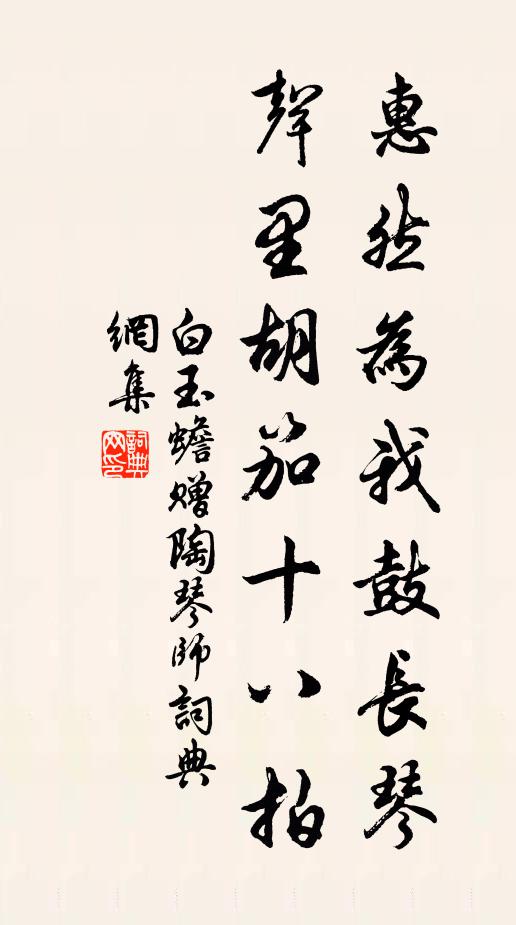 惠然為我鼓長琴
聲里胡笳十八拍
白玉蟾贈陶琴師詞典
網集
詞典網印